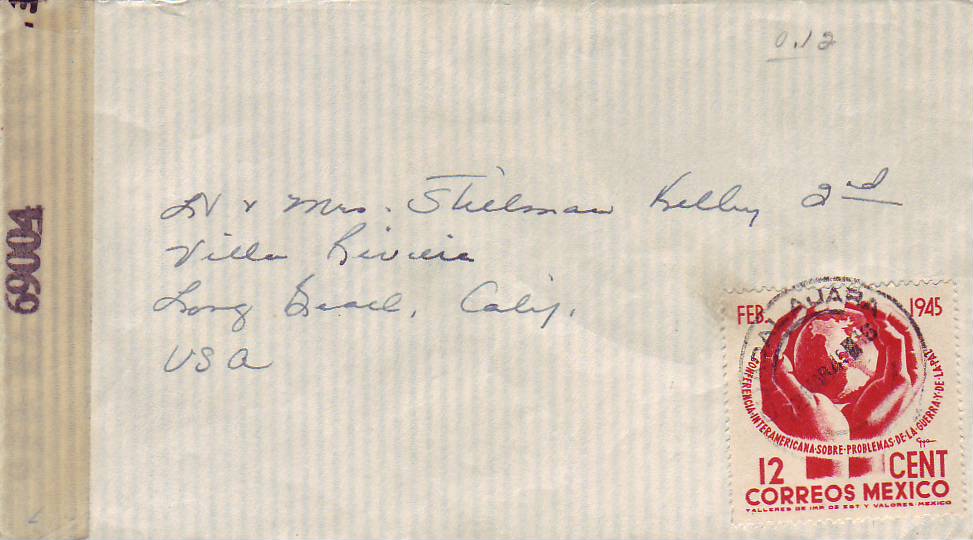 0.12
69004
Lt & Mrs. Stillman Kelley 2nd
Villa Riviera
Long Beach, Calif.
USA
FEB. 1945
GUADALAJARA
CONFERENCIA·INTERAMERICANA·SOBRE·PROBLEMAS·DE·LA·GUERRA·Y·DE·LA·PAZ
12 CENT
CORREOS MEXICO
TALLERES DE IMP. DE EST. Y VALORES-MEXICO